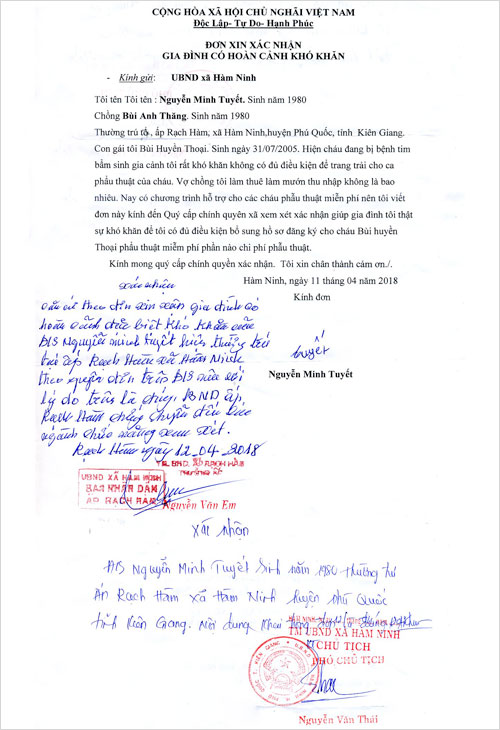 CỘNG HÒA XÃ HỘI CHỦ NGHÃI VIỆT NAM
Độc Lập- Tự Do- Hạnh Phúc
ĐƠN XIN XÁC NHẬN
GIA ĐÌNH CÓ HOÀN CẢNH KHÓ KHĂN
- Kính gửi: UBND xã Hàm Ninh
Tôi tên Tôi tên : Nguyễn Minh Tuyết. Sinh năm 1980
Chồng Bùi Anh Thăng. Sinh năm 1980
Thường trú tổ , ấp Rạch Hàm, xã Hàm Ninh,huyện Phú Quốc, tính Kiên Giang.
Con gái tôi Bùi Huyền Thoại. Sinh ngày 31/07/2005. Hiện cháu đang bị bệnh tim
bẩm sinh gia cảnh tôi rất khó khăn không có đủ điều kiện để trang trải cho ca
phẩu thuật của cháu. Vợ chồng tôi làm thuê làm mướn thu nhập không là bao
nhiêu. Nay có chương trình hỗ trợ cho các cháu phẫu thuật miễn phí nên tôi viết
đơn này kính đến Quý cấp chính quyền xã xem xét xác nhận giúp gia đình tôi thật
sự khó khăn để tôi có đủ điều kiện bổ sung hồ sơ đăng ký cho cháu Bùi huyền
Thoại phẩu thuật miễm phí phần nào chi phí phẫu thuật.
Kính mong quý cấp chính quyền xác nhận. Tôi xin chân thành cảm ơn./.
Hàm Ninh, ngày 11 tháng 04 năm 2018
Kính đơn
Tuyết
Nguyễn Minh Tuyết
xác nhận
Căn cứ theo đơn xin xác gia đình có
hoàn cảnh đặc biệt khó khăn của
Đ/S Nguyễn minh Tuyết hiện thường trú
tại ấp Rạch Hàm xã Hàm Ninh
theo nguyên đơn trên Đ/S nêu với
lý do trên là đúng. BND ấp
Rạch Hàm chuyển đến các
ngành chức năng xem xét.
Rạch Hàm ngày 12-04-2018
TM. BND. ẤP RẠCH HÀM
TRƯỞNG ẤP
UBND XÃ HÀM NINH
BAN NHÂN DÂN
ẤP RẠCH HÀM
Nguyễn Văn Em
Xác nhận
Nguyễn Minh Tuyết Sinh năm 1980 thường trú
Ấp Rạch Hàm Xã Hàm Ninh huyện Phú Quốc
tỉnh Kiên Giang. Nội dung khai trong đơn là
TM UBND XÃ HÀM NINH
KT CHỦ TỊCH
PHÓ CHỦ TỊCH
Nguyễn Văn Thái